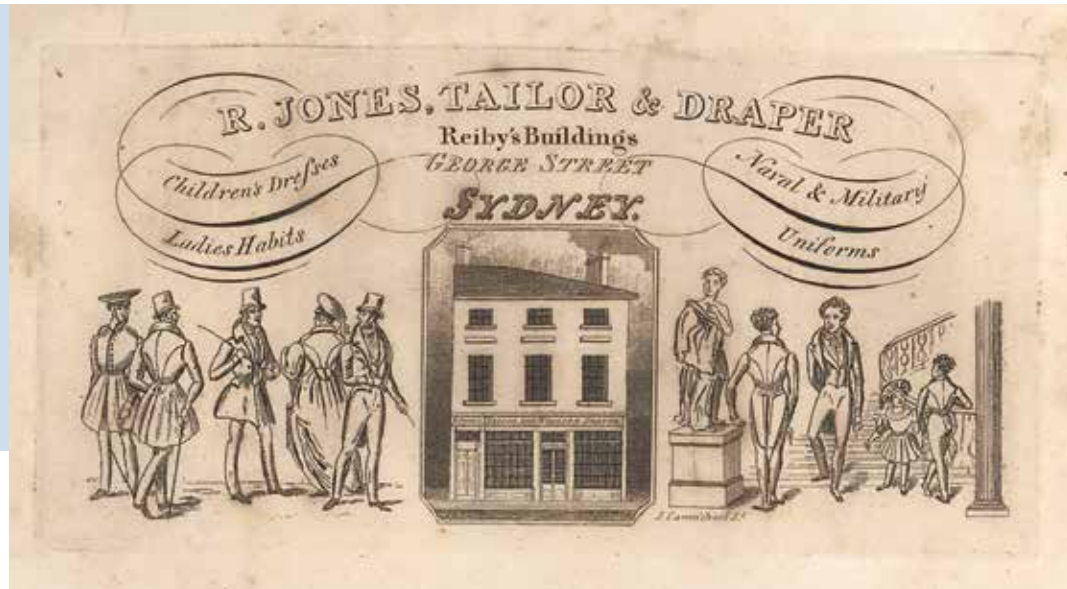 R. JONES, TAILOR & DRAPER
Reiby's Buildings
GEORGE STREET
SYDNEY.
Children's Dreſses
Ladies Habits
Naval & Military
Uniforms
TAILOR AND WOOLLEN DRAPER